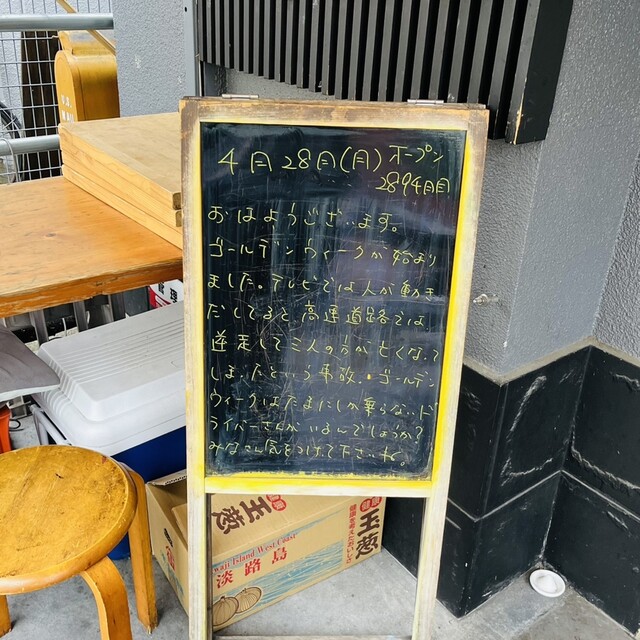 4月28日(月) オープン
2894日目
おはようございます。
ゴールデンウィークが始まり
ました。テレビでは人が動き
だしてると高速道路では
逆走して三人の方が亡くなって
しまったという事故。ゴールデン
ウィークはたまにしか乗らないド
ライバーさんがいるんでしょうか?
みなさん気をつけて下さいね。
玉葱
健康を考えておいしい
玉葱
Awaji Island West Coast
淡路島